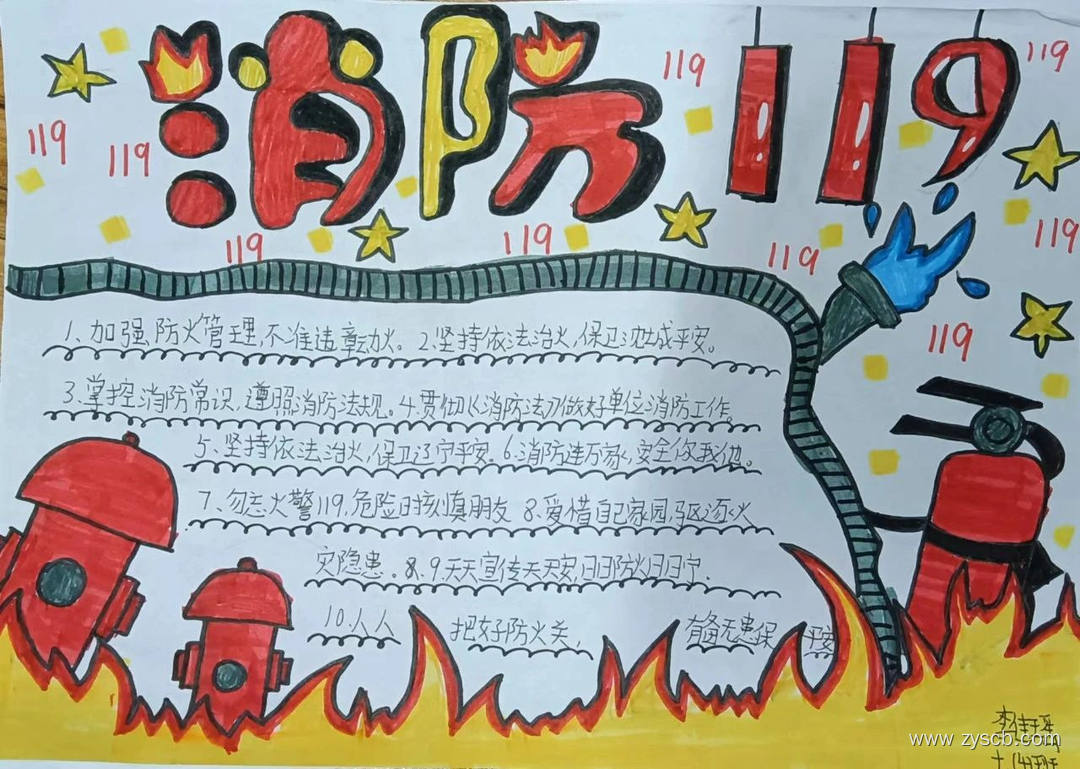 消防119
119
119
119
119
119
119
119
119
119
1、加强防火管理,不准违章动火。2.坚持依法治火,保卫平安。
3.掌控消防常识,遵照消防法规。4.贯彻《消防法》做好单位消防工作。
5、坚持依法治火,保卫辽宁平安。6.消防连万家,安全你我他。
7、勿忘火警119,危险时挨慎朋友 8.爱惜自己家园,驱逐火
灾隐患。8.9.天天宣传天天安,日日防火日日宁.
10.人人 把好防火关, 有备无患保 平安
www.zyscb.com